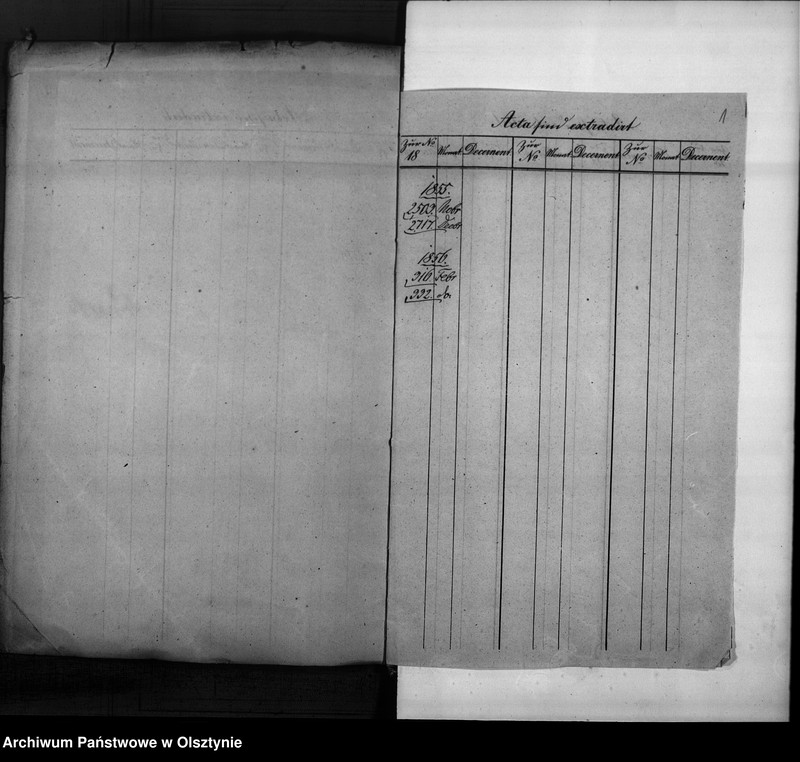 1
Acta sind extradirt
Zur No 18 Monat Decernent Zur No Monat Decernent Zur No Monat Decernent
1855.
2503. Nobr
2717. Decbr
1856.
316. Febr
332. do.
Archiwum Państwowe w Olsztynie